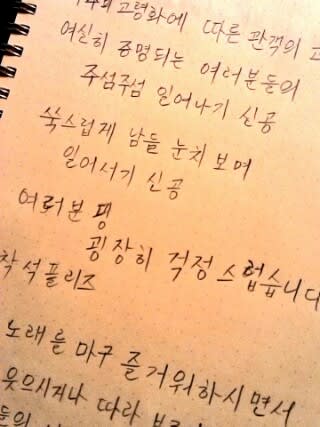 고령화에 따른 관객의 고
여실히 증명되는 여러분들의
주섬주섬 일어나기 신공
쑥스럽게 남들 눈치 보며
일어서기 신공
여러분 평
굉장히 걱정스럽습니다
착석플리즈
노래를 마구 즐거워하시면서
웃으시거나 따라